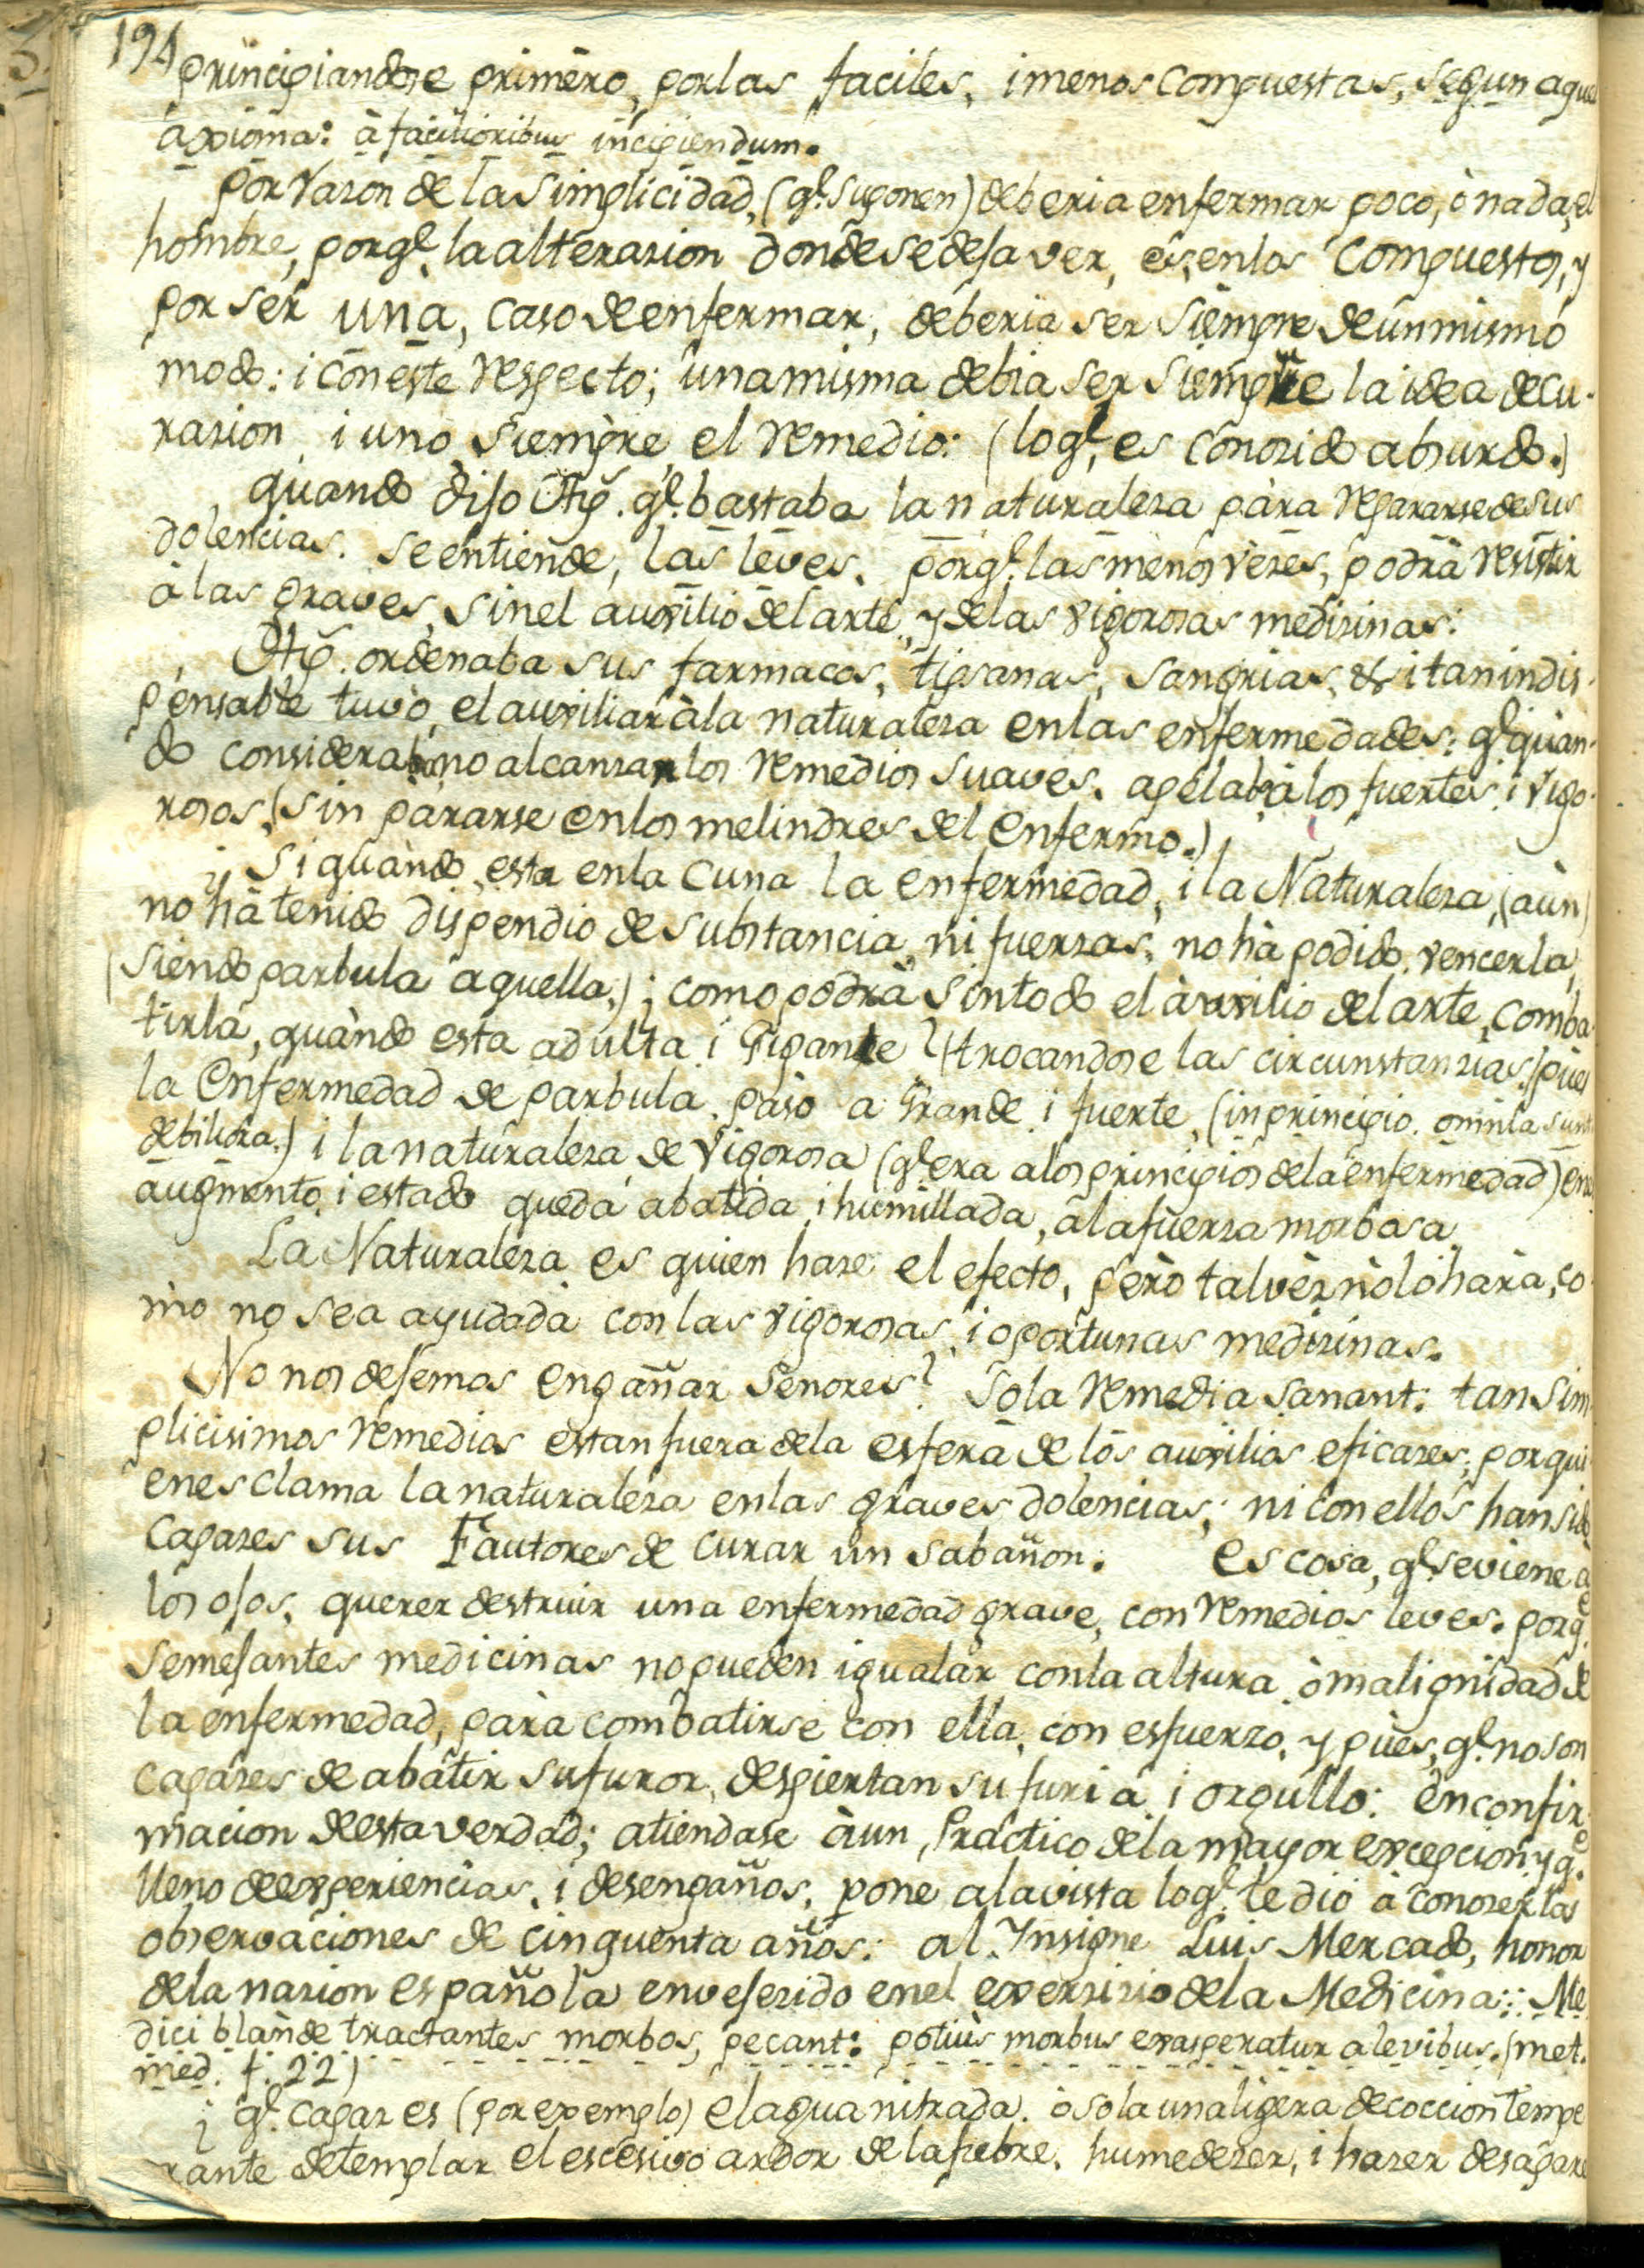 194
principiandose primèro, por las faciles, i menos compuestas, segun aquel
axioma: à facilioribus incipiendum.
por razon de la simplicidad, (q.e suponen) deberia enfermar poco, ò nada, el
hombre, porq.e la alterazion donde se deja ver, es, en los compuestos, y
por ser una, caso de enfermar, deberia ser siempre de un mismo
modo: i con este respecto; una misma debia ser siempre la idea de cu-
razion, i uno siempre el remedio: (loq.e es conozido absurdo.)
quando dijo Hip. q.e bastaba la naturaleza pàra repararse de sus
dolencias. se entiende, las leves. porq.e las menos vezes, podrà resistir
à las graves, sin el auxilio del arte, y de las vigorosas medizinas.
Hip. ordenaba sus farmacos, tipsanas, sangrias, &. i tan indis-
pensable tuvo, el auxiliar à la naturaleza en las enfermedades: q.e quan-
do consideraba no alcanzar los remedios suaves. apelaba à los fuertes, i vigo-
rosos, (sin pararse en los melindres del enfermo.)
¿ Si quàndo esta en la cuna la enfermedad, i la Naturaleza, (aùn)
no hà tenido dispendio de substancia, ni fuerzas, no hà podido vencerla,
(siendo parbula aquella.); como podrà sin todo el àuxilio del arte, comba-
tirla, quàndo esta adulta i Gigante? (trocandose las circunstanzias.) pues
la enfermedad de parbula. pàso a Grande i fuerte, (in principio. omnia sunt
debiliora.) i la naturaleza de vigorosa (q.e era a los principios de la enfermedad) en el
augmento, i estado queda abatida i humillada, à la fuerza morbosa.
La Naturaleza es quien haze el efecto, pero tal vèz nò lo harà, co-
mo no sea ayudada con las vigorosas, i oportunas medizinas.
No nos dejemos engañar señores? sola remedia sanant: tan sim-
plicisimos remedios estan fuera de la esfera de los auxilios eficazes, por qui-
enes clama la naturaleza en las graves dolencias; ni con ellos han sido
capazes sus Fautores de curar un sabañon. es cosa, q.e se viene a
los ojos, querer destruir una enfermedad grave, con remedios leves. porq.e
semejantes medicinas no pueden igualar con la altura ò malignidad de
la enfermedad, pàra combatirse con ella, con esfuerzo, y pùes, q.e no son
capazes de abatir su furor, despiertan su furia i orgullo: en confir-
macion de esta verdad; atiendase àun, Práctico de la mayor excepcion, y q.e
lleno de experiencias, i desengaños, pone a la vista loq.e le dió à conozer las
observaciones de cinquenta años: al Ynsigne Luis Mercado, honor
de la nazion española envejezido en el exerzizio de la Medicina:: Me-
dici blande tractantes morbos, pecant: potiùs morbus exasperatur a levibus. (met.
med. f. 22)
¿ q.e capaz es (por exemplo) el agua nitrada. ò sola una ligera decoccion tempe-
rante de templar el escesivo ardor de la fiebre, humedezer, i hazer desapare-